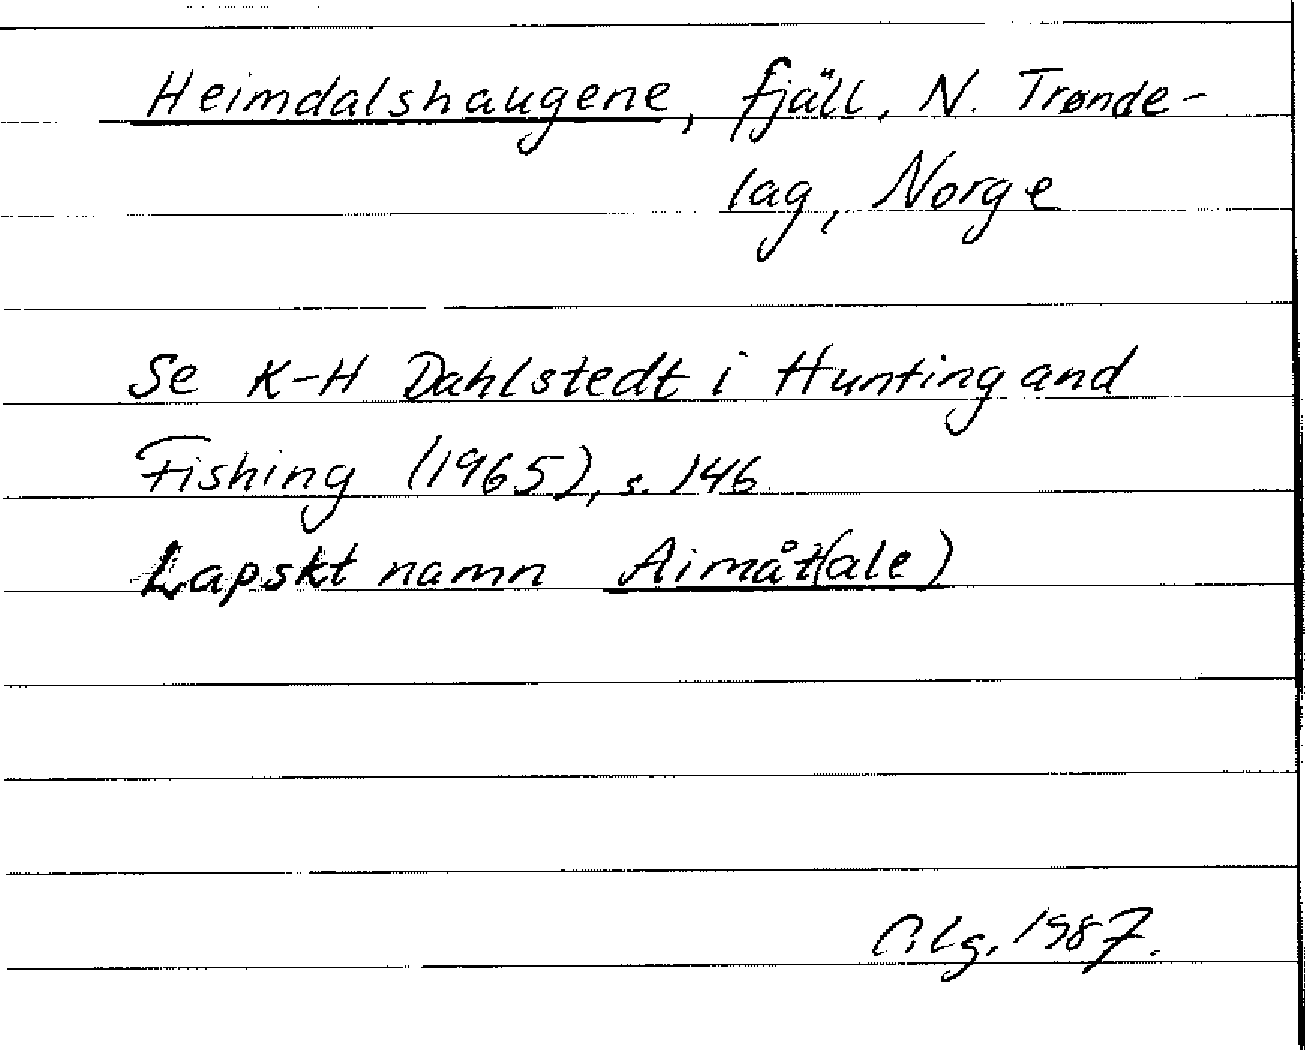 Heimdalshaugene, fjäll, N. Trønde-
lag, Norge
Se K-H Dahlstedt i Hunting and
Fishing (1965), s. 146
Lapskt namn Aimåt(ale)
1987.